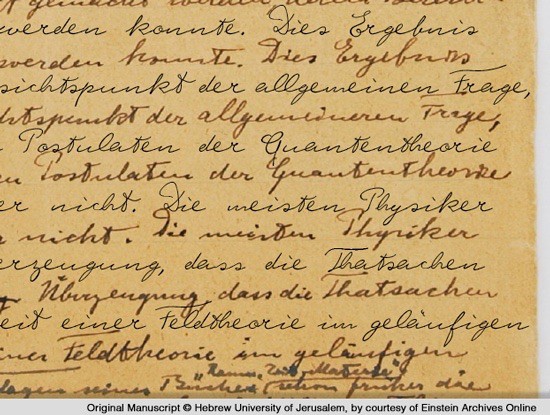 gemacht werden
werden konnte. Dies Ergebnis
werden konnte. Dies Ergebnis
sichtspunkt der allgemeinen Frage,
chtspunkt der allgemeineren Frage,
Postulaten der Quantentheorie
en Postulaten der Quantentheorie
er nicht. Die meisten Physiker
r nicht. Die meisten Physiker
erzeugung, dass die Thatsachen
Überzeugung, dass die Thatsachen
eit einer Feldtheorie im geläufigen
einer Feldtheorie im geläufigen
"Raum, Zeit, Materie"
seines Buches schon früher die
Original Manuscript © Hebrew University of Jerusalem, by courtesy of Einstein Archives Online